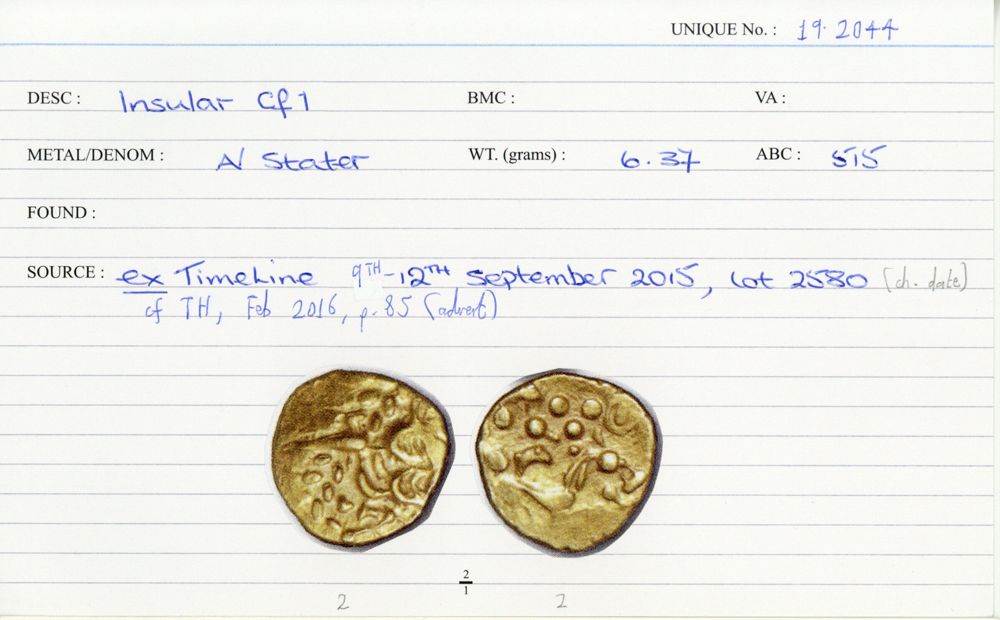 UNIQUE No. : 19.2044
DESC : Insular Cf1 BMC : VA :
METAL/DENOM : A/ Stater WT. (grams) : 6.37 ABC : 515
FOUND :
SOURCE : ex TimeLine 9TH-12TH September 2015, Lot 2580 (ch. date)
cf TH, Feb 2016, p.85 (advert)
2
1
2 2